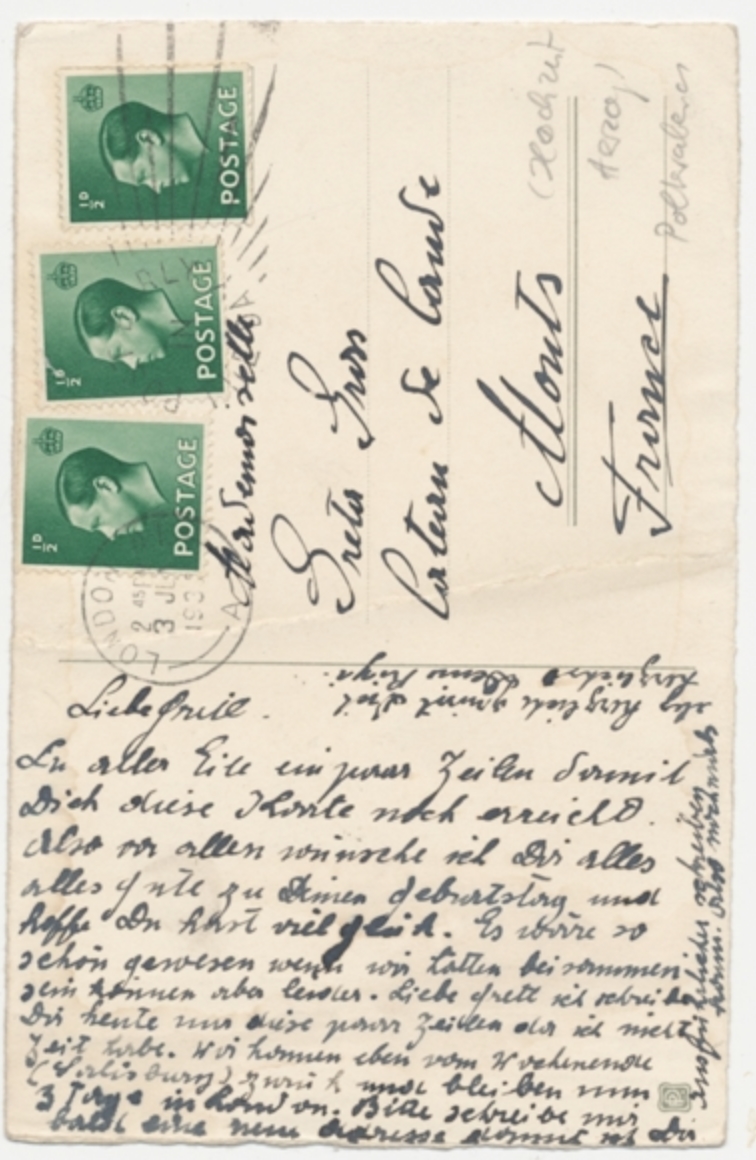 ½D
POSTAGE
½D
POSTAGE
½D
POSTAGE
LONDON
2 45 PM
3 JU
193
Mademoiselle
Greta
de Cande
Monts
France
(Hochzeit
Herzog
Liebe Gretl.
In aller Eile ein paar Zeilen damit
Dich diese Karte noch erreicht.
Also vor allen wünsche ich Dir alles
alles gute zu Deinen geburtstag und
hoffe Du hast viel glück. Es wäre so
schön gewesen wenn wir hätten beisammen
sein können aber leider. Liebe Gretl ich schreibe
Dir heute nur diese paar Zeilen da ich nicht
Zeit habe. Wir kommen eben vom Wochenende
(Salisbury) zurück und bleiben nun
3 Tage in London. Bitte schreibe mir
bald eine neue Adresse damit ich Dir
ausführlicher schreiben
kann. Also nochmals
herzlichst Deine